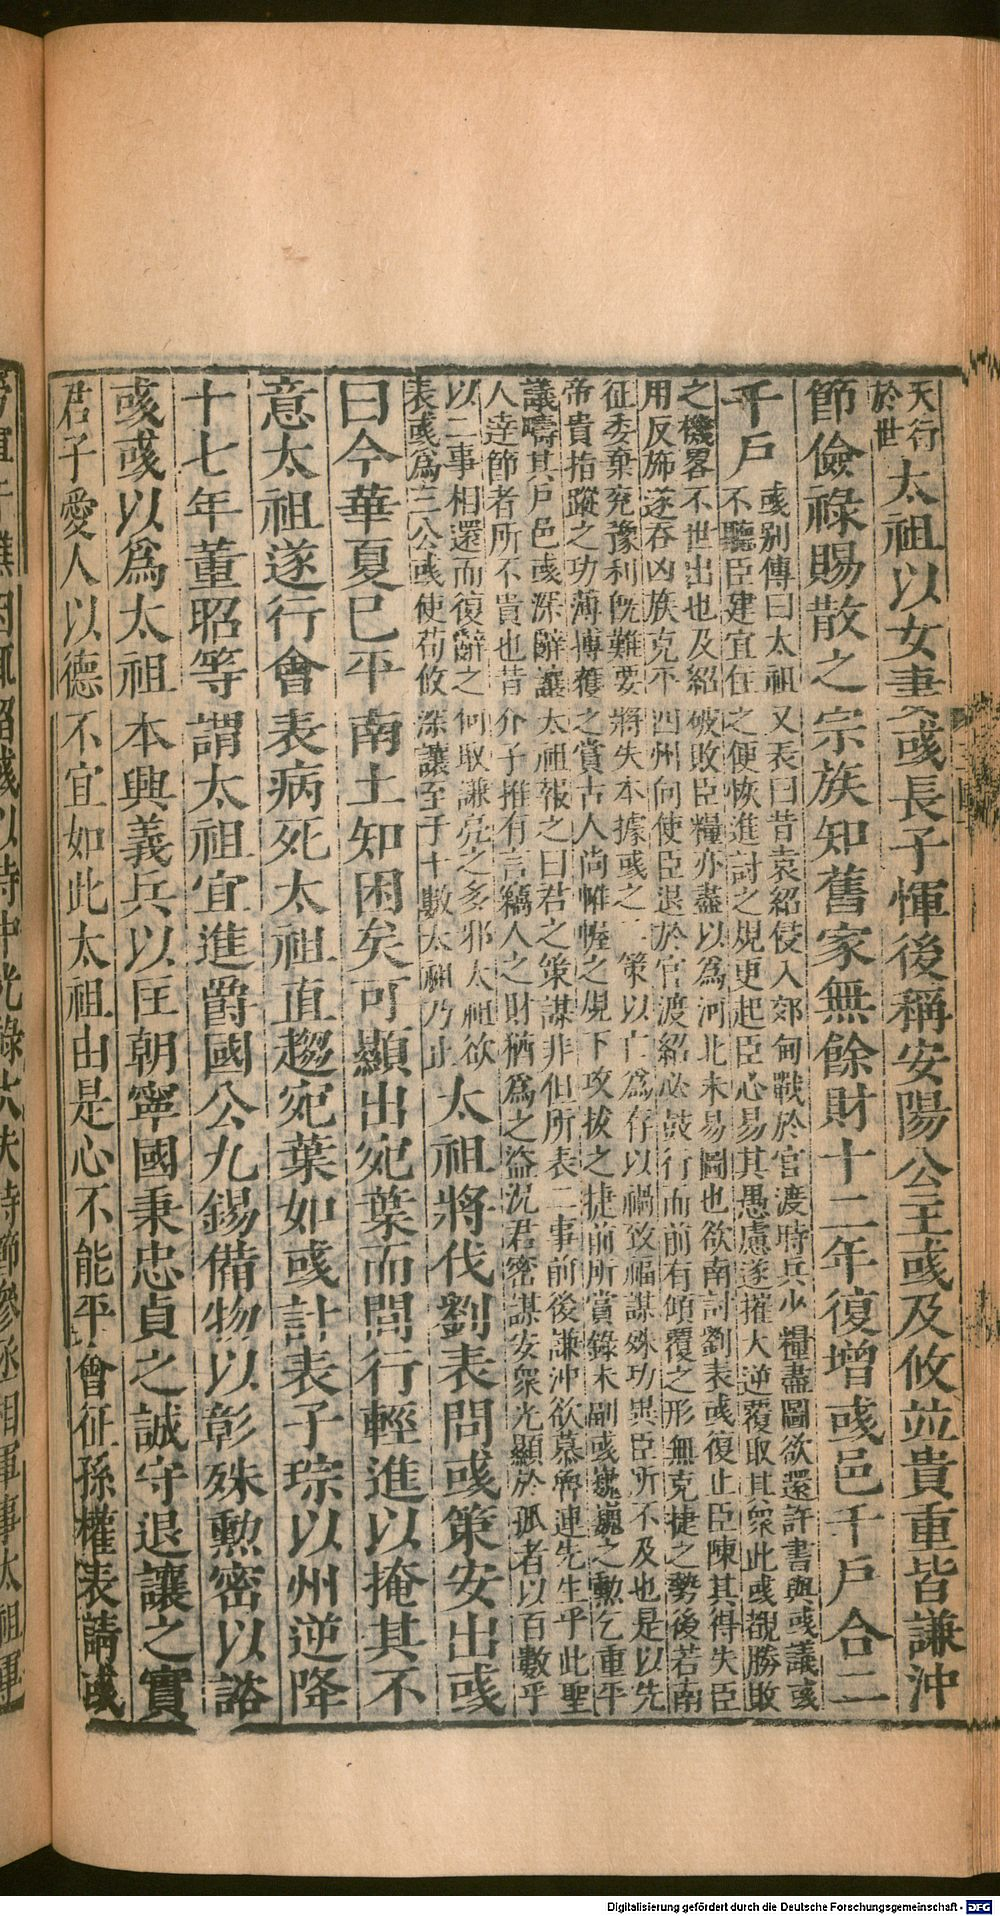 天行
於世
太祖以女妻彧長子惲後稱安陽公主彧及攸並貴重皆謙沖
節儉祿賜散之宗族知舊家無餘財十二年復增彧邑千戶合二
千戶
彧别傳曰太祖又表曰昔袁紹侵入郊甸戰於官渡時兵少糧盡圖欲還許書與彧議彧
不聽臣建宜住之便恢進討之規更起臣心易其愚慮遂摧大逆覆取其衆此彧覩勝敗
之機畧不世出也及紹破敗臣糧亦盡以爲河北未易圖也欲南討劉表彧復止臣陳其得失臣
用反斾遂吞凶族克平四州向使臣退於官渡紹必鼓行而前有傾覆之形無克捷之勢後若南
征委棄兗豫利旣難要將失本據彧之二策以亡爲存以禍致福謀殊功異臣所不及也是以先
帝貴指蹤之功薄搏獲之賞古人尚帷幄之規下攻拔之捷前所賞錄未副彧巍巍之勳乞重平
議疇其戶邑彧深辭讓太祖報之曰君之策謀非但所表二事前後謙沖欲慕魯連先生乎此聖
人達節者所不貴也昔介子推有言竊人之財猶爲之盜況君密謀安衆光顯於孤者以百數乎
以二事相還而復辭之何取謙亮之多邪太祖欲
表彧爲三公彧使荀攸深讓至于十數太祖乃止
太祖將伐劉表問彧策安出彧
曰今華夏已平南土知困矣可顯出宛葉而間行輕進以掩其不
意太祖遂行會表病死太祖直趨宛葉如彧計表子琮以州逆降
十七年董昭等謂太祖宜進爵國公九錫備物以彰殊勳密以諮
彧彧以爲太祖本興義兵以匡朝寧國秉忠貞之誠守退讓之實
君子愛人以德不宜如此太祖由是心不能平會征孫權表請彧
因輒留彧以侍中光祿大夫持節參丞相軍事太祖軍
Digitalisierung gefördert durch die Deutsche Forschungsgemeinschaft - DFG